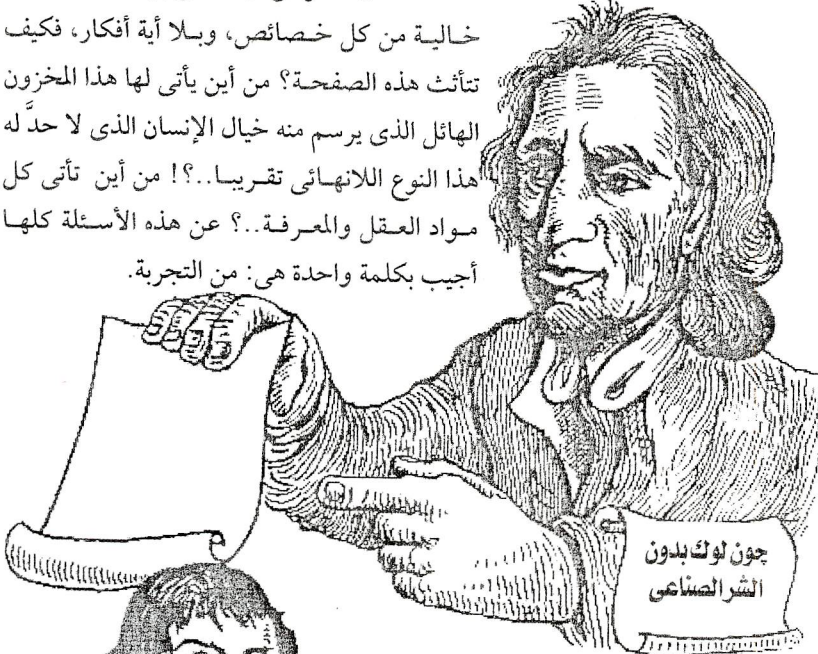 خالية من كل خصائص، وبلا أية أفكار، فكيف
تتأثث هذه الصفحة؟ من أين يأتى لها هذا المخزون
الهائل الذى يرسم منه خيال الإنسان الذى لا حدَّ له
هذا النوع اللانهائى تقريبا..؟! من أين تأتى كل
مواد العقل والمعرفة..؟ عن هذه الأسئلة كلها
أجيب بكلمة واحدة هى: من التجربة.
چون لوك بدون
الشر الصناعى